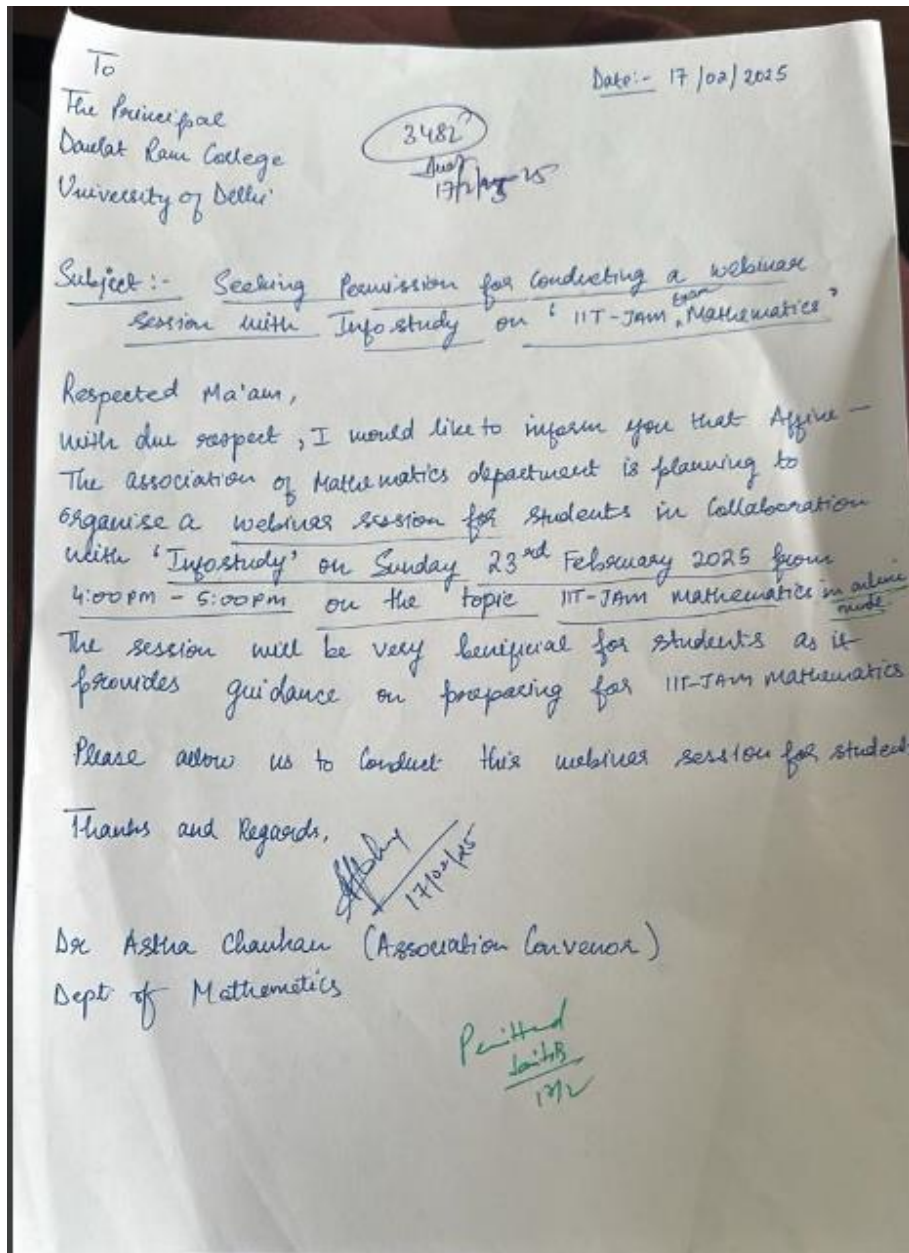 To
Date:- 17/02/2025
The Principal
Daulat Ram College
University of Delhi
3482
17/2/25
Subject :- Seeking Permission for Conducting a webinar
session with Infostudy on ‘IIT-JAM exam Mathematics’
Respected Ma'am,
with due respect, I would like to inform you that Affine –
The association of Mathematics department is planning to
organise a webinar session for students in Collaboration
with ‘Infostudy’ on Sunday 23rd February 2025 from
4:00pm – 5:00pm on the topic IIT-JAM mathematics in online
mode.
The session will be very benificial for students as it
provides guidance on preparing for IIT-JAM Mathematics
Please allow us to Conduct this webinar session for student
Thanks and Regards,
17/02/25
Dr Astha Chauhan (Association Convenor)
Dept of Mathematics
Permitted
17/2